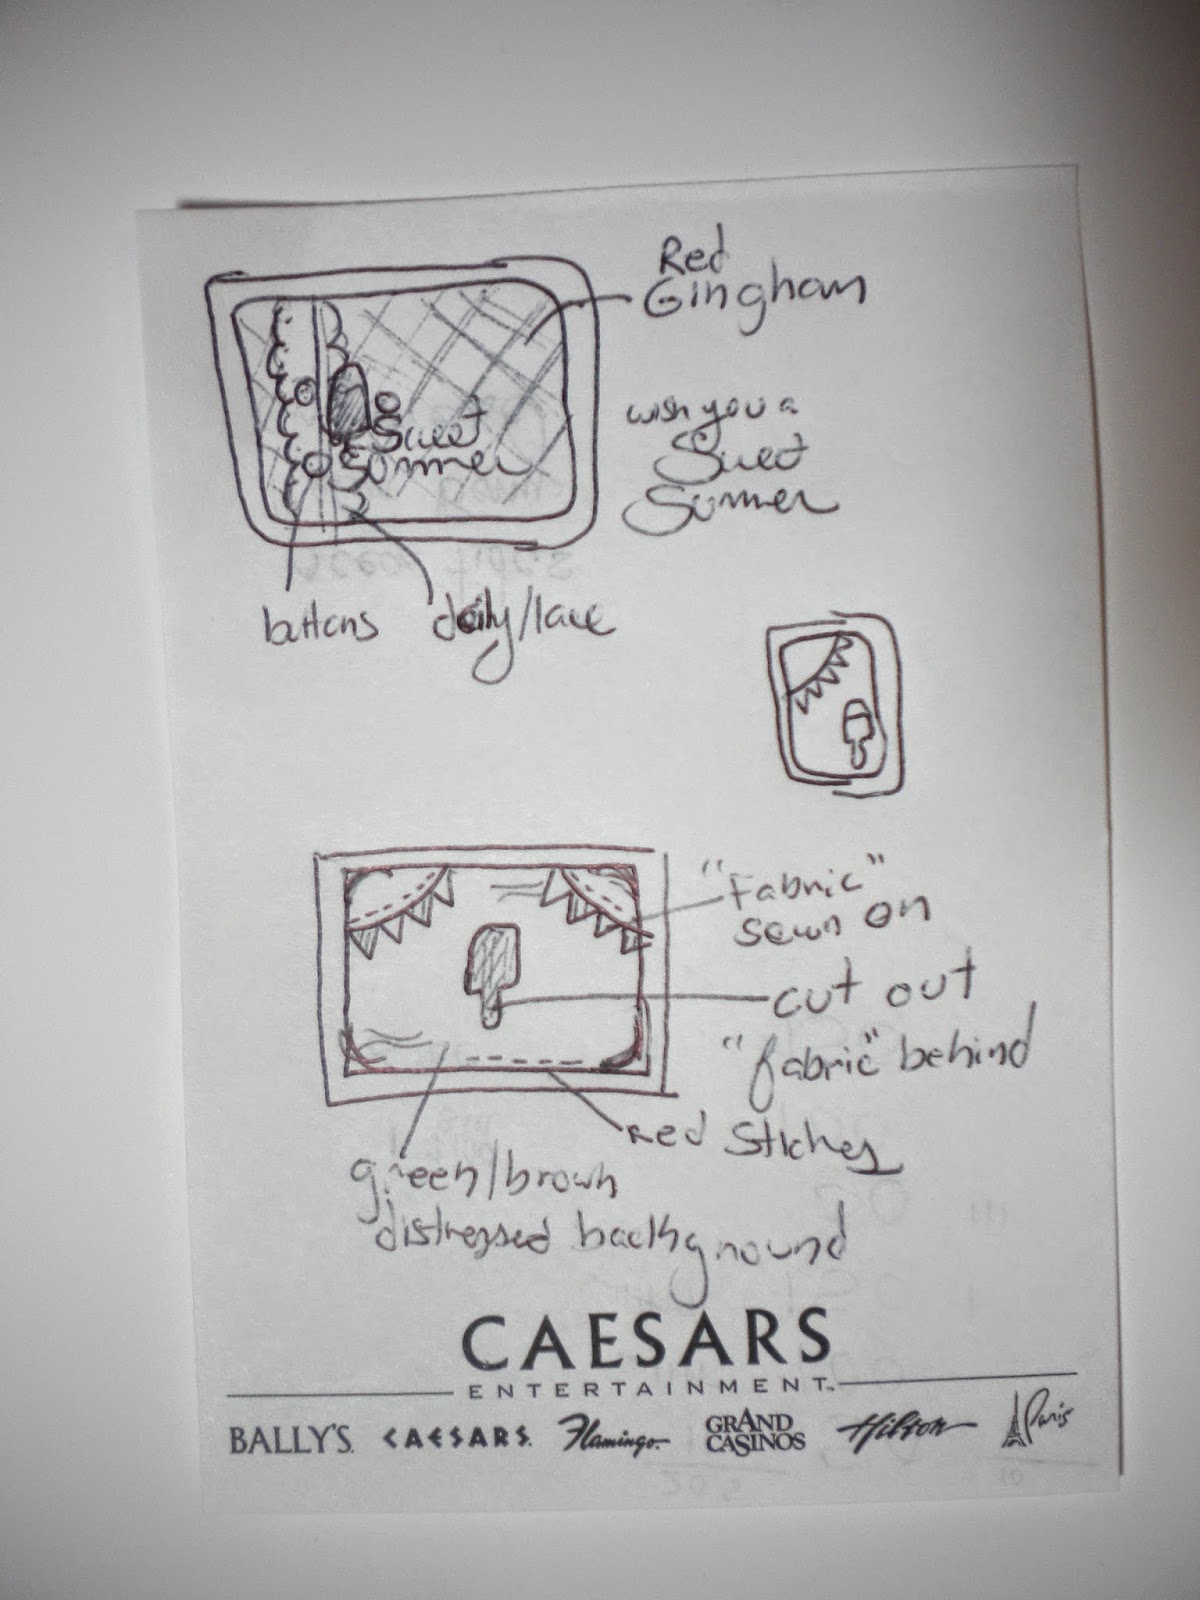 Red
Gingham
wish you a
Sweet
Summer
Sweet
Summer
buttons doily/lace
"Fabric"
sewn on
cut out
"fabric" behind
Red Stiches
green/brown
distressed background
CAESARS
ENTERTAINMENT™
BALLY'S. CAESARS. Flamingo. GRAND CASINOS Hilton Paris